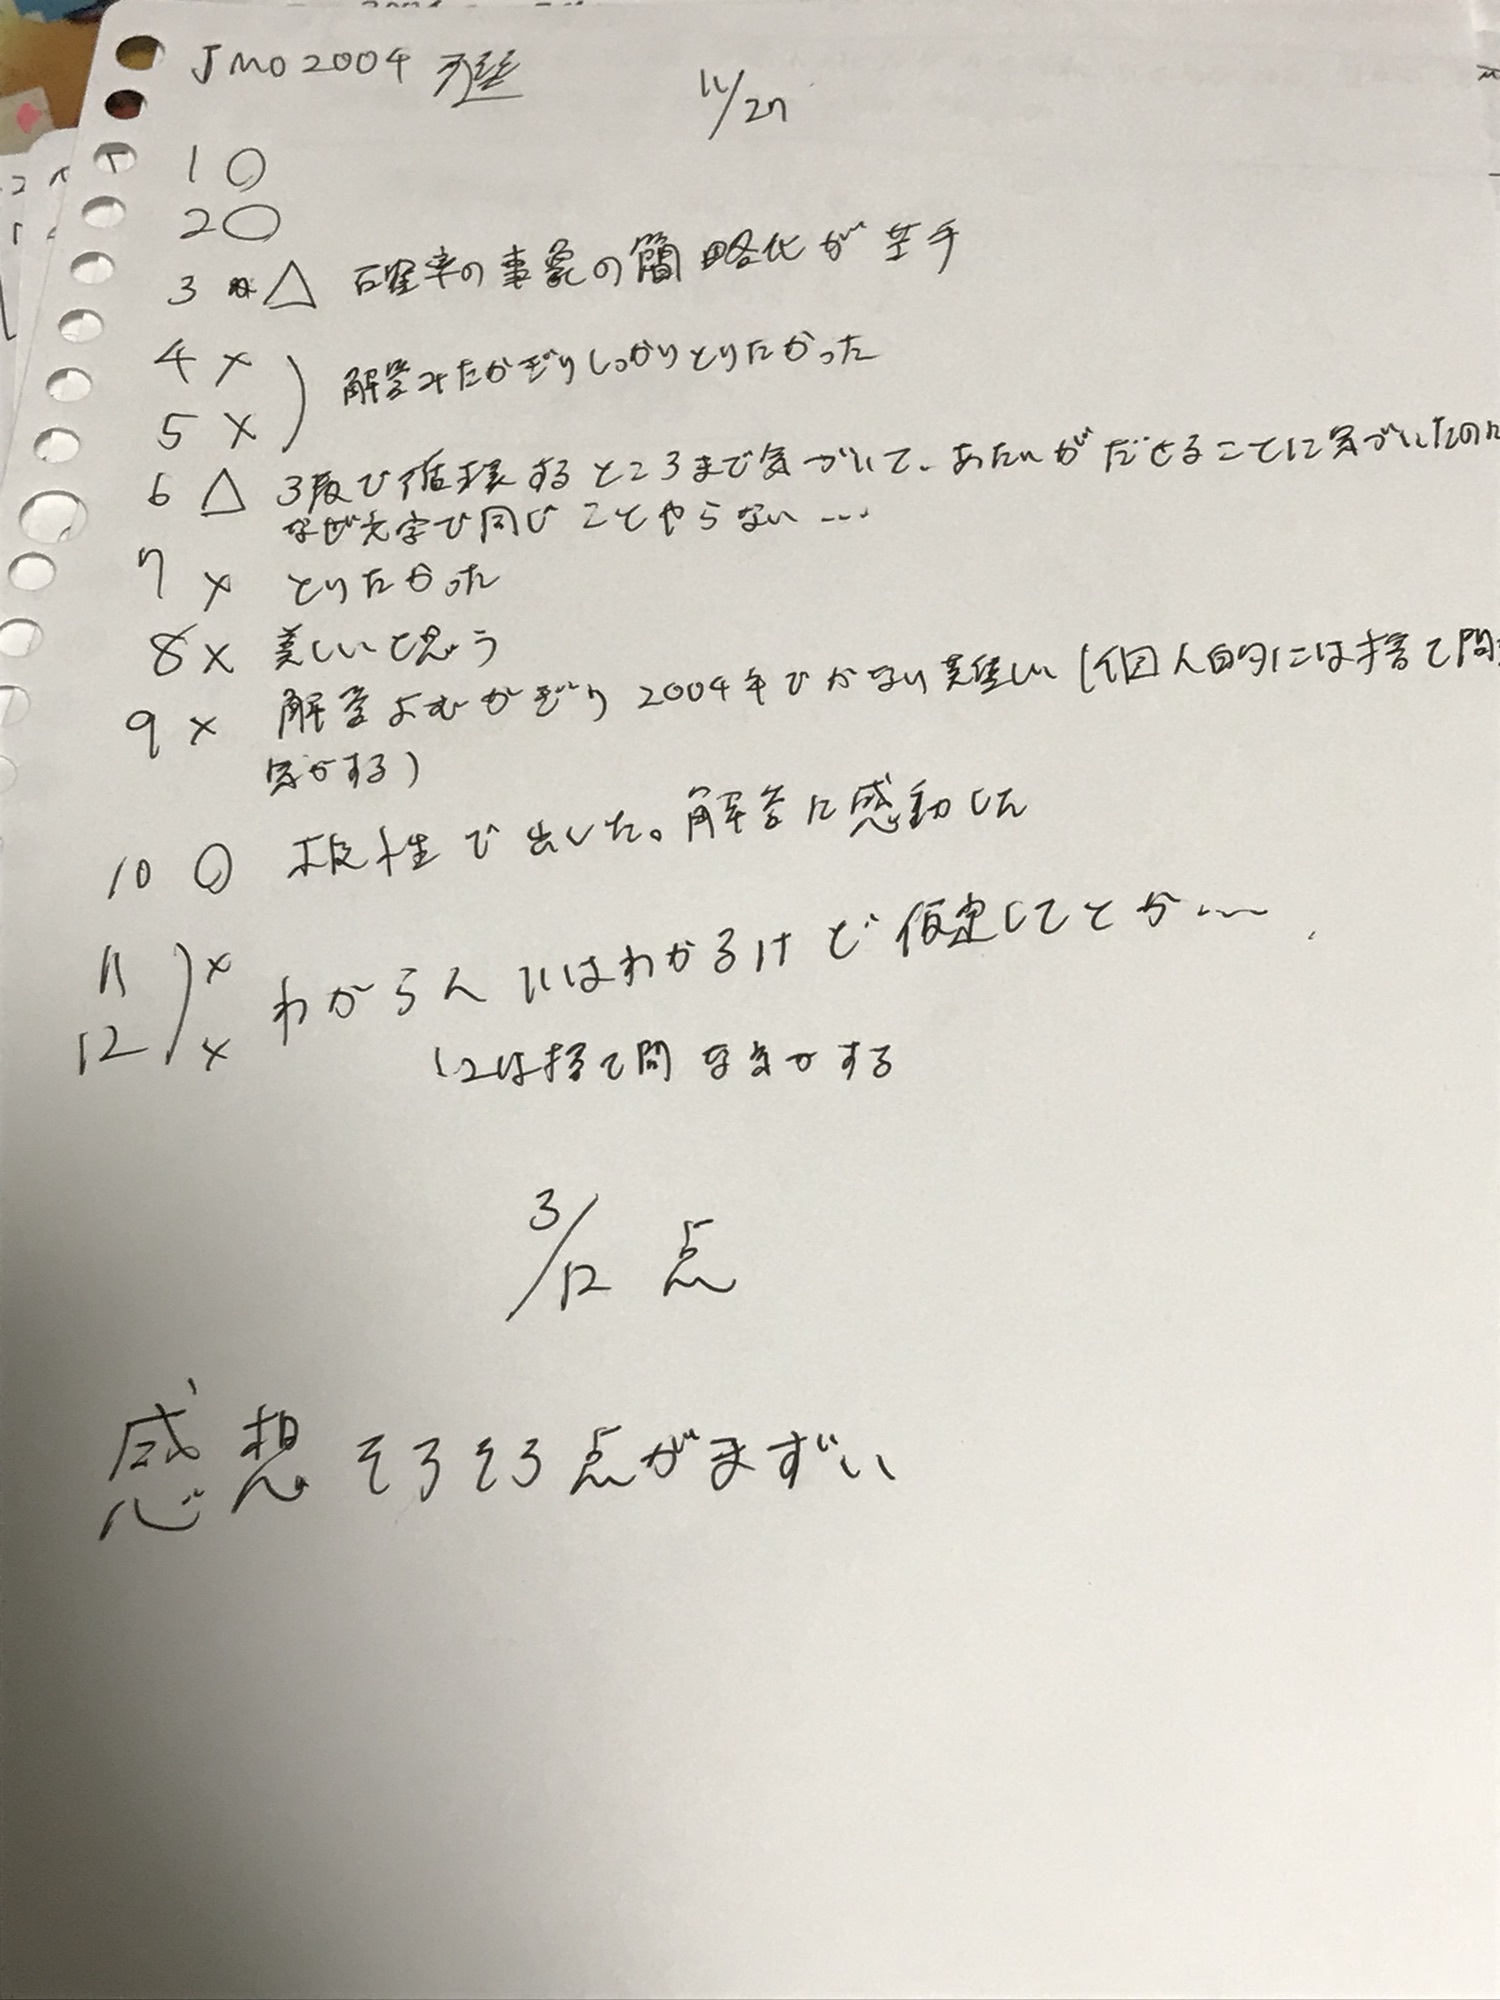 JMO2004 予選 11/27
1 ○
2 ○
3 △ 確率の事象の簡略化が苦手
4 ×
5 × 解答みたかぎりしっかりとりたかった
6 △ 3項で循環するところまで気づいて、あたいがだせることに気づいたのに
なぜ文字で同じことやらない…
7 × とりたかった
8 × 美しいと思う
9 × 解答よむかぎり2004年でかなり難しい(個人的には捨て問
気がする)
10 ○ 根性で出した。解答に感動した
11 ×
12 × わからん 11はわかるけど仮定してとか…
12は捨て問な気がする
3/12 点
感想 そろそろ点がまずい